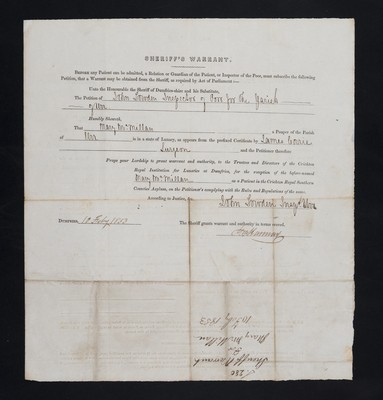 SHERIFF'S WARRANT.
BEFORE any Patient can be admitted, a Relation or Guardian of the Patient, or Inspector of the Poor, must subscribe the following
Petition, that a Warrant may be obtained from the Sheriff, as required by Act of Parliament:—
Unto the Honourable the Sheriff of Dumfries-shire and his Substitute,
The Petition of John Inspector of Poor for the Parish
of Urr
Humbly Sheweth,
That Mary McMillan a Pauper of the Parish
of Urr is in a state of Lunacy, as appears from the prefixed Certificate by James
Surgeon and the Petitioner therefore
Prays your Lordship to grant warrant and authority, to the Trustees and Directors of the Crichton
Royal Institution for Lunatics at Dumfries, for the reception of the before-named
Mary McMillan as a Patient in the Crichton Royal Southern
Counties Asylum, on the Petitioner's complying with the Rules and Regulations of the same.
According to Justice, &c.
John Insp Urr
DUMFRIES, 10 Feby 1853 The Sheriff grants warrant and authority in terms craved.
Sheriff Warrant
Mary McMillan
10 Feby 1853